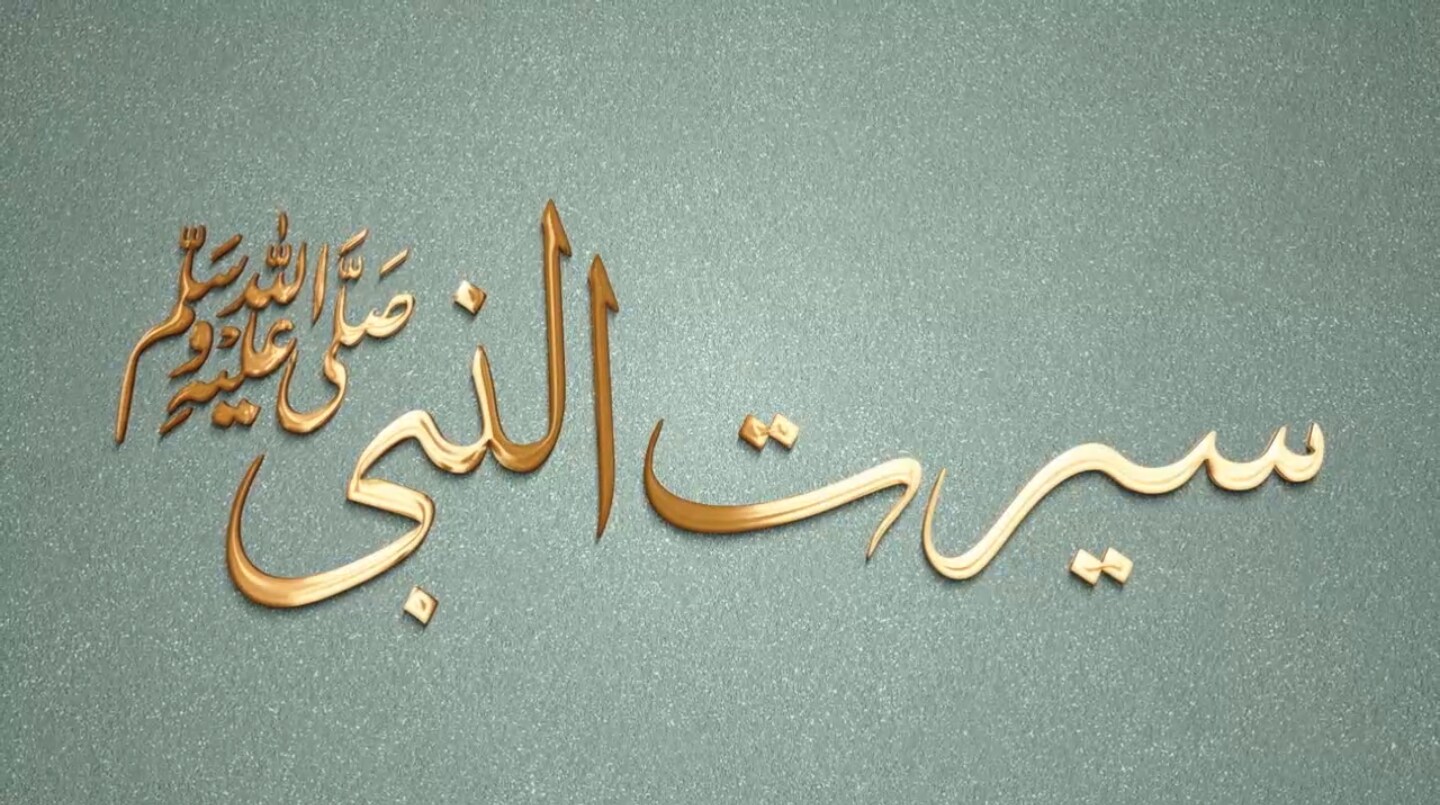 سیرت النبی صَلَّی اللّٰہُ عَلَیْہِ وَسَلَّم